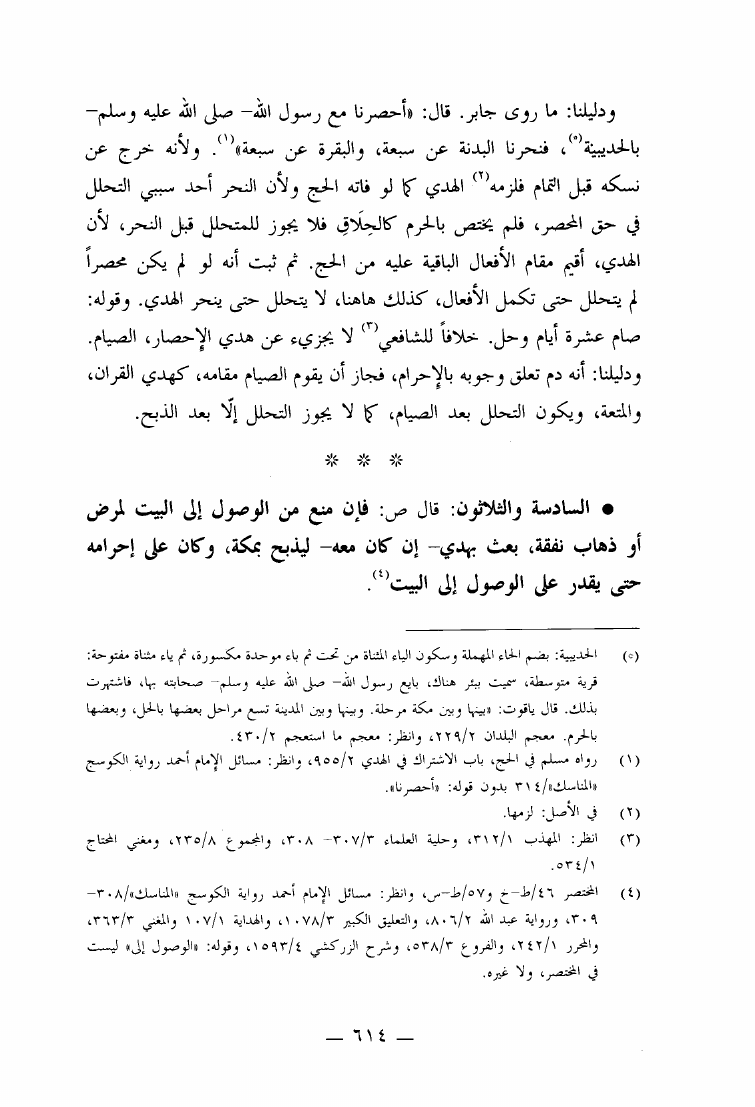 ودليلنا: ما روى جابر. قال: «أحصرنا مع رسول الله– صلى الله عليه وسلم–
بالحديبية(*)، فنحرنا البدنة عن سبعة، والبقرة عن سبعة»(١). ولأنه خرج عن
نسكه قبل التمام فلزمه(٢) الهدي كما لو فاته الحج ولأن النحر أحد سببي التحلل
في حق المحصر، فلم يختص بالحرم كالحِلَاقِ فلا يجوز للمتحلل قبل النحر، لأن
الهدي، أقيم مقام الأفعال الباقية عليه من الحج. ثم ثبت أنه لو لم يكن محصراً
لم يتحلل حتى تكمل الأفعال، كذلك هاهنا، لا يتحلل حتى ينحر الهدي. وقوله:
صام عشرة أيام وحل. خلافاً للشافعي(٣) لا يجزيء عن هدي الإحصار، الصيام.
ودليلنا: أنه دم تعلق وجوبه بالإحرام، فجاز أن يقوم الصيام مقامه، كهدي القران،
والمتعة، ويكون التحلل بعد الصيام، كما لا يجوز التحلل إلّا بعد الذبح.
* * *
● السادسة والثلاثون: قال ص: فإن منع من الوصول إلى البيت لمرض
أو ذهاب نفقة، بعث بهدي– إن كان معه– ليذبح بمكة، وكان على إحرامه
حتى يقدر على الوصول إلى البيت(٤).
(*) الحديبية: بضم الحاء المهملة وسكون الياء المثناة من تحت ثم باء موحدة مكسورة، ثم ياء مثناة مفتوحة:
قرية متوسطة، سميت ببئر هناك، بايع رسول الله– صلى الله عليه وسلم– صحابته بها، فاشتهرت
بذلك. قال ياقوت: «بينها وبين مكة مرحلة. وبينها وبين المدينة تسع مراحل بعضها بالحل، وبعضها
بالحرم. معجم البلدان ٢٢٩/٢، وانظر: معجم ما استعجم ٤٣٠/٢.
(١) رواه مسلم في الحج، باب الاشتراك في الهدي ٩٥٥/٢، وانظر: مسائل الإمام أحمد رواية الكوسج
«المناسك»/٣١٤ بدون قوله: «أحصرنا».
(٢) في الأصل: لزمها.
(٣) انظر: المهذب ٣١٢/١، وحلية العلماء ٣٠٧/٣– ٣٠٨، والمجموع ٢٣٥/٨، ومغني المحتاج
٥٣٤/١.
(٤) المختصر ٤٦/ط–خ و٥٧/ط–س، وانظر: مسائل الإمام أحمد رواية الكوسج «المناسك»/٣٠٨–
٣٠٩، ورواية عبد الله ٨٠٦/٢، والتعليق الكبير ١٠٧٨/٣، والهداية ١٠٧/١ والمغني ٣٦٣/٣،
والمحرر ٢٤٢/١، والفروع ٥٣٨/٣، وشرح الزركشي ١٥٩٣/٤، وقوله: «الوصول إلى» ليست
في المختصر، ولا غيره.
— ٦١٤ —